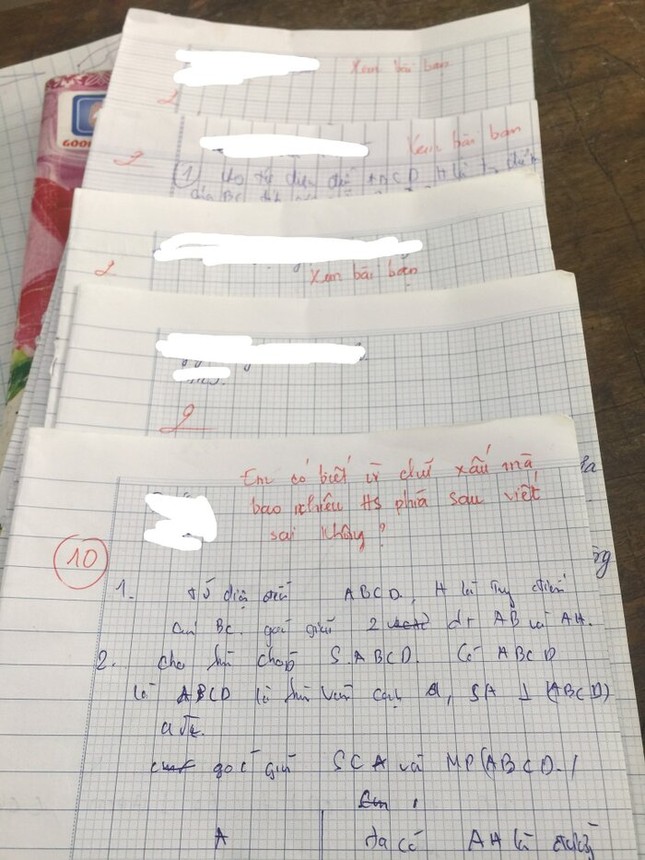 Xem bài bạn
2
GOOD
Xem bài bạn
2
1 Cho tứ diện đều ABCD H là
của BC
2
Xem bài bạn
9
Em có biết vì chữ xấu mà
bao nhiêu HS phía sau viết
sai không?
10
1. tứ diện đều ABCD, H là trung điểm
của BC. góc giữa 2 dt AB và AH.
2. cho hình chóp S.ABCD. Có ABCD
là ABCD là hình vuông cạnh a, SA ⊥ (ABCD)
góc giữa SCA và MP(ABCD)
A
Ta có AH là đường